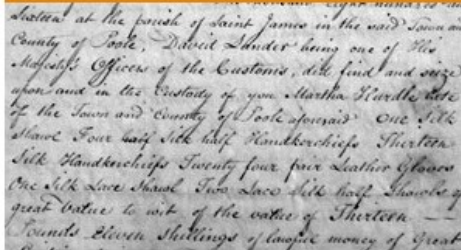 eight hundred and
Sixteen at the parish of Saint James in the said Town and
County of Poole, David Sander being one of His
Majesty's Officers of the Customs, did find and seize
upon and in the Custody of you Martha Hurdle late
of the Town and County of Poole aforesaid One Silk
Shawl Four half Silk half Handkerchiefs Thirteen
Silk Handkerchiefs Twenty four pair Leather Gloves
One Silk Lace Shawl Two Lace Silk half Shawls of
great Value to wit of the value of Thirteen
Pounds Eleven shillings of lawful money of Great